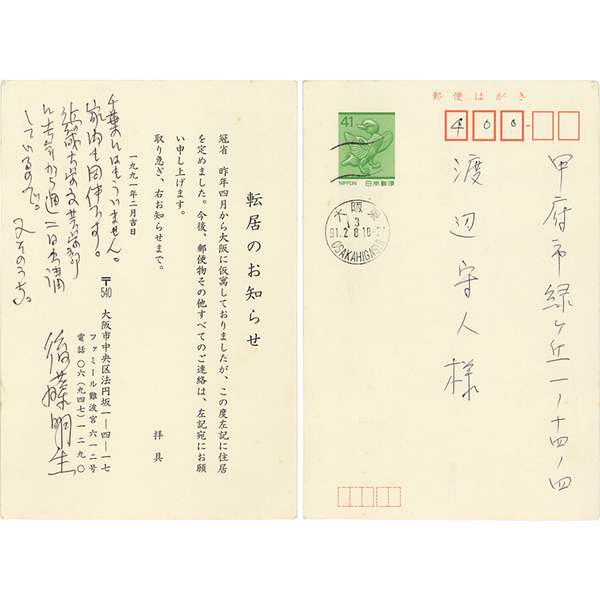 転居のお知らせ
冠省 昨年四月から大阪に仮寓しておりましたが、この度左記に住居
を定めました。今後、郵便物その他すべてのご連絡は、左記宛にお願
い申し上げます。
取り急ぎ、右お知らせまで。
拝具
一九九一年二月吉日
〒540 大阪市中央区法円坂一―四―一七
ファミール難波宮六一二号
電話〇六(九四七)一二九〇
後藤明生
千葉にはもういません。
家内も同伴です。
近畿大学文芸学部
しているので。
又そのうち。
郵便はがき
400-
41
NIPPON 日本郵便
大阪東
3
91.2.8 18-24
OSAKAHIGASHI
甲府市緑ヶ丘一ノ十四ノ四
渡辺守人様